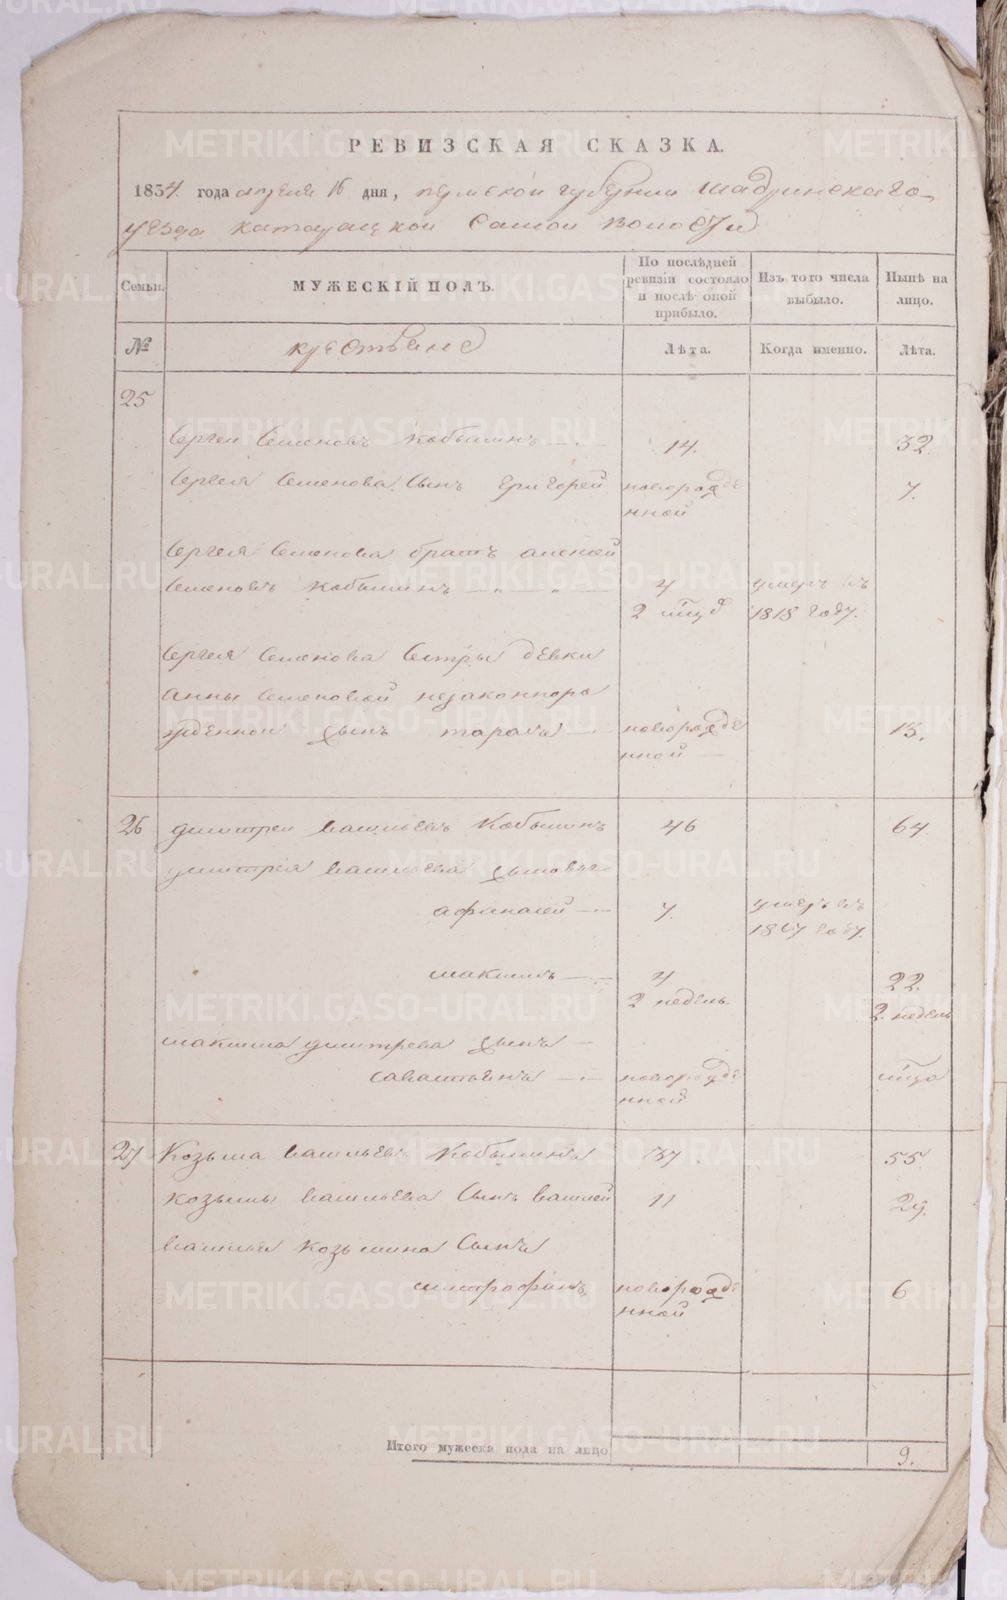 РЕВИЗСКАЯ СКАЗКА.
1834 года апреля 16 дня, пермской губернии шадринскаго
уезда катайской самой волости
Семьи.
МУЖЕСКІЙ ПОЛЪ.
По послѣдней ревизіи состояло и послѣ оной прибыло.
Изъ того числа выбыло.
Нынѣ на лицо.
№
крестьяне
Лѣта.
Когда именно.
Лѣта.
25
Сергеи Семеновъ Кобылинъ 14. 32.
Сергея Семенова Сынъ Григорей новорожде 7.
нной
Сергея Семенова братъ алексей
Семеновъ Кобылинъ 4 умеръ въ
2 1818 году.
Сергея Семенова Сестры девки
анны Семеновой незаконноро
жденной сынъ тарасъ новорожде 15.
нной
26 дмитреи васильевъ Кобылинъ 46 64.
дмитрея васильева сыновья
афанасей 7. умеръ въ
18 7 году.
максимъ 4 22.
2 недель. 2. недель
максима дмитрева сынъ
савастьянъ новорожде
нной
27 Козьма васильевъ Кобылинъ 37 55
козьмы васильева Сынъ василей 11 29.
василья козьмина Сынъ
митрофанъ новорожде 6
нной
Итого мужеска пола на лицо 9.
METRIKI.GASO-URAL.RU